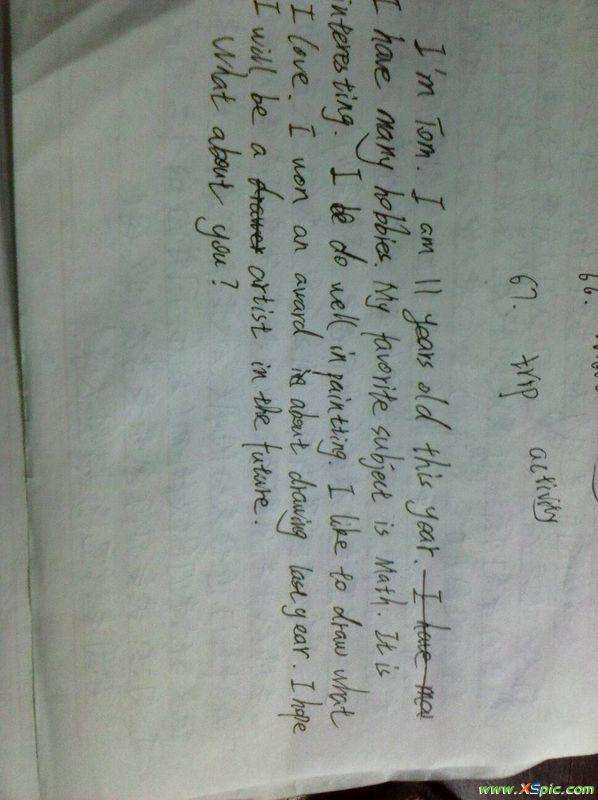 66.
67. trip activity
I'm Tom. I am 11 years old this year. I have ma
I have many hobbies. My favorite subject is Math. It is
interesting. I be do well in paintting. I like to draw what
I love. I won an award in about drawing last year. I hope
I will be a drawer artist in the future.
What about you?
www.XSpic.com